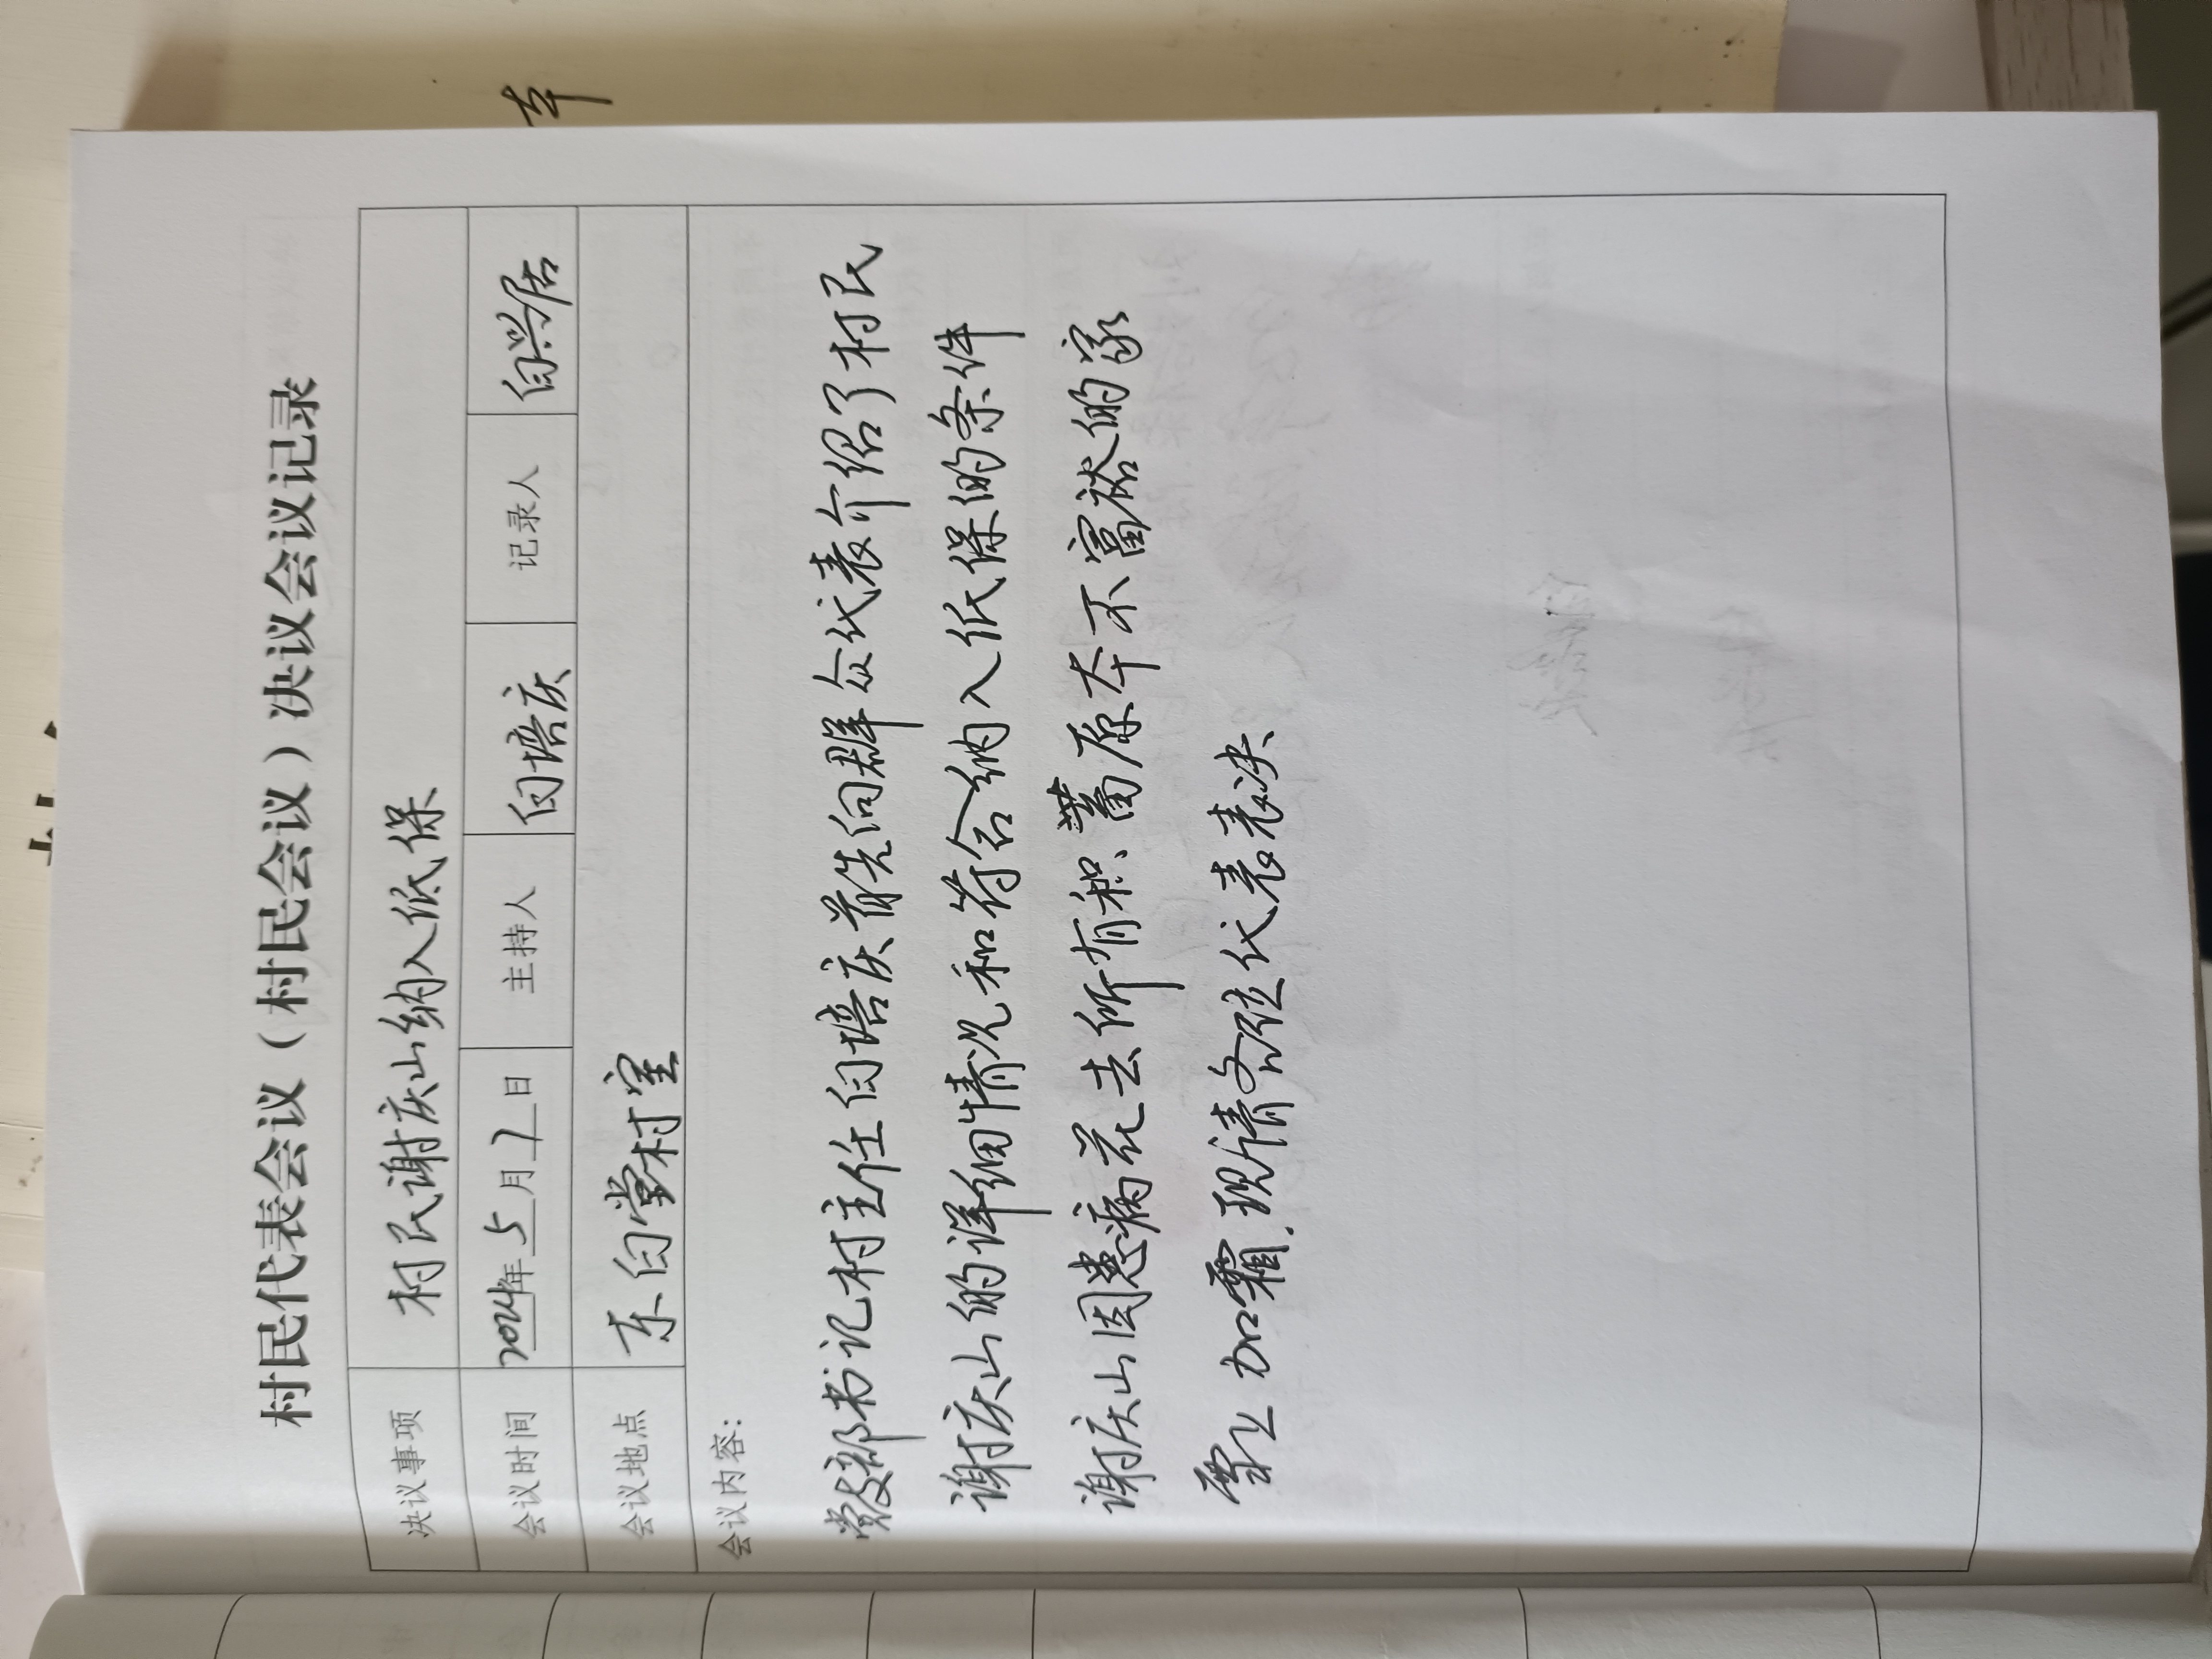 村民代表会议（村民会议）决议会议记录
决议事项 村民谢庆山纳入低保
会议时间 2024年5月7日 主持人 白培庆 记录人 白兴居
会议地点 东白堂村室
会议内容：
党支部书记村主任白培庆首先向群众代表介绍了村民
谢庆山的详细情况和符合纳入低保的条件
谢庆山因患病花去所有积蓄原本不富裕的家
雪上加霜.现请各位代表表决